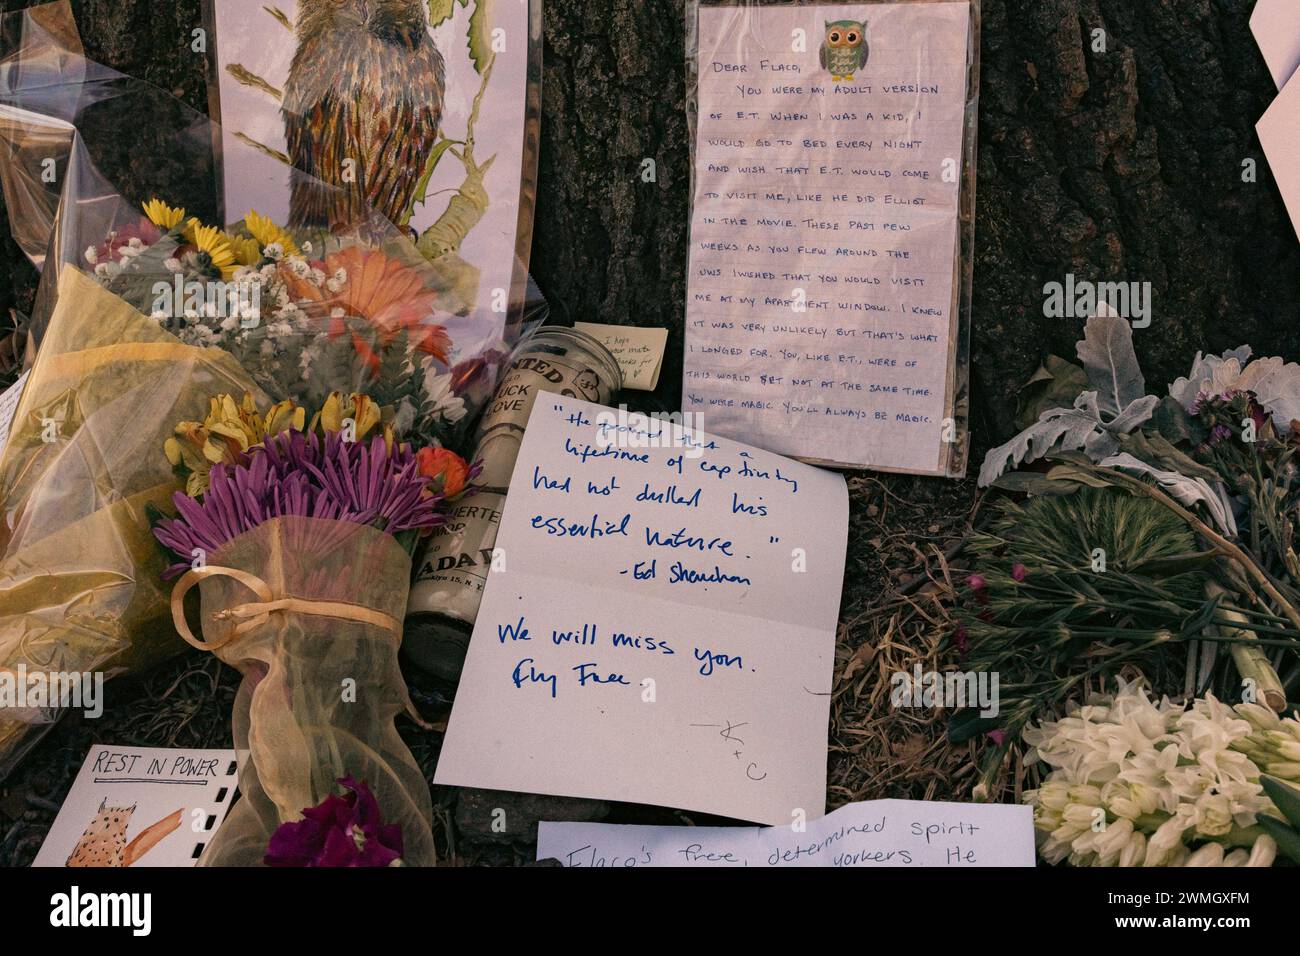 DEAR FLACO,
YOU WERE MY ADULT VERSION
OF E.T. WHEN I WAS A KID, I
WOULD GO TO BED EVERY NIGHT
AND WISH THAT E.T. WOULD COME
TO VISIT ME, LIKE HE DID ELLIOT
IN THE MOVIE. THESE PAST FEW
WEEKS AS YOU FLEW AROUND THE
UWS. I WISHED THAT YOU WOULD VISIT
ME AT MY APARTMENT WINDOW. I KNEW
IT WAS VERY UNLIKELY BUT THAT'S WHAT
I LONGED FOR. YOU, LIKE E.T., WERE OF
THIS WORLD YET NOT AT THE SAME TIME.
YOU WERE MAGIC. YOU'LL ALWAYS BE MAGIC.
I hope
your mate
thanks for
LUCK
LOVE
"He proved that a
lifetime of captivity
had not dulled his
essential nature."
-Ed Shenchan
We will miss you.
Fly Free.
-K
+
C
REST IN POWER
Flaco's free, determined spirit
yorkers. He
alamy
Image ID: 2WMGXFM
www.alamy.com